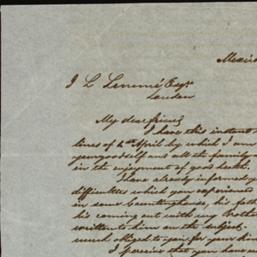 Mexico
J L Lemmé Esqr.
London
My dear friend,
I have this instant
lines of 4th April by which I am
yourgoodself and all the family
in the enjoyment of good health.
I have already informed y
difficulties which you experienced
in some Countinghouse, his fath
his coming out with my brother
written to him on the subject.
much obliged to you for your kin
I perceive that you have